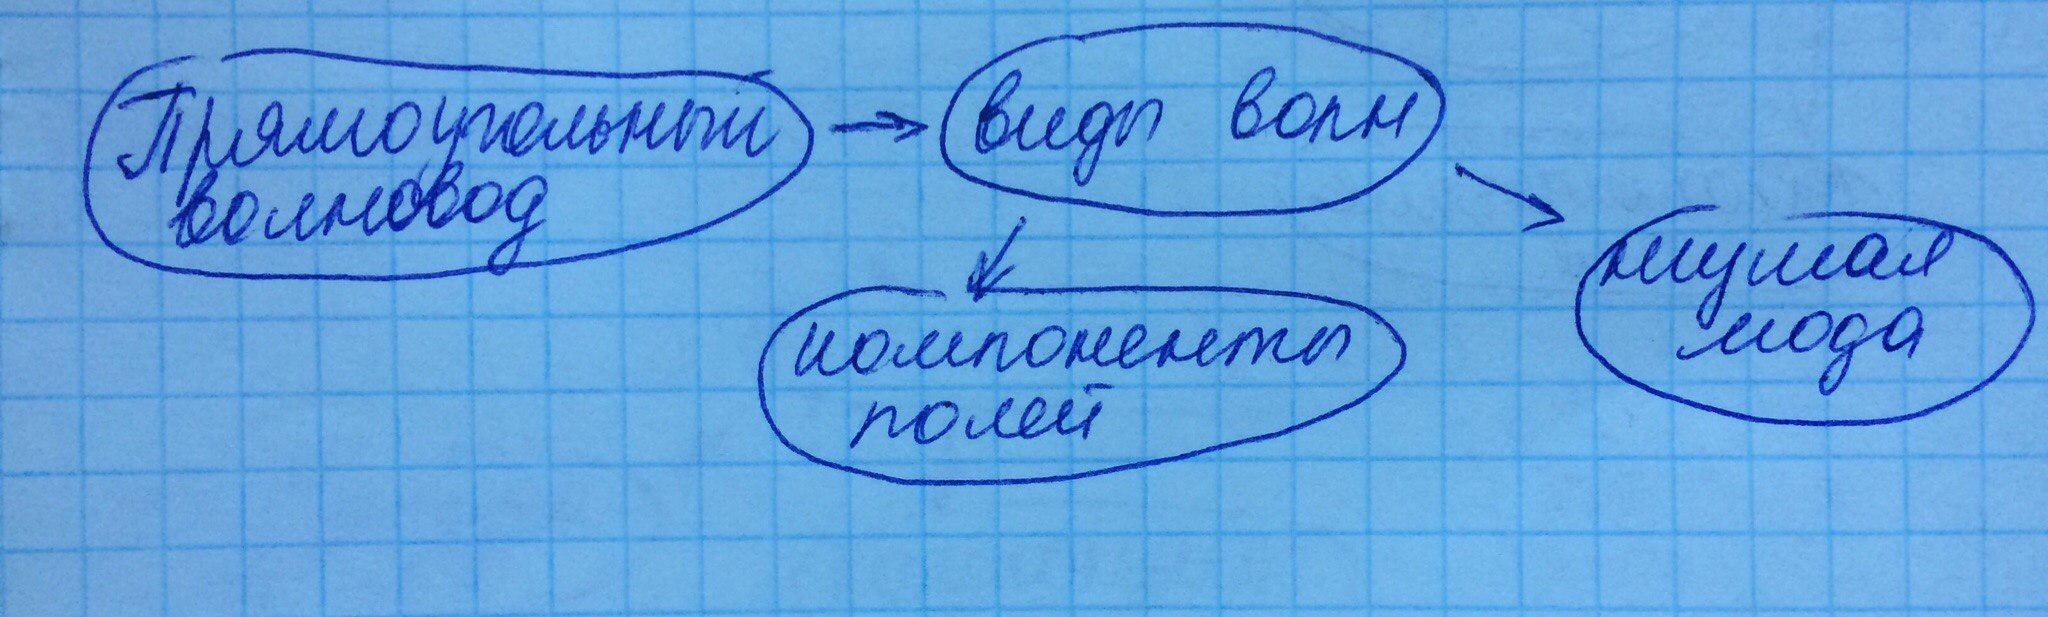 Прямоугольный
волновод
виды волн
компоненты
полей
нужная
мода